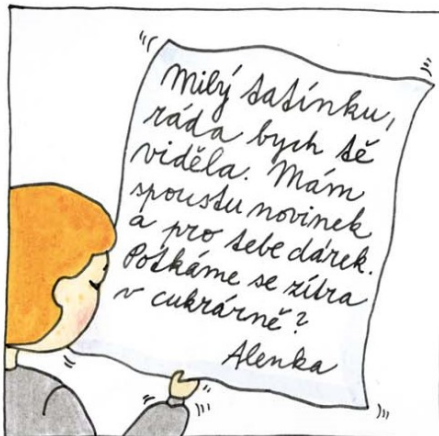 Milý tatínku,
ráda bych tě
viděla. Mám
spoustu novinek
a pro tebe dárek.
Potkáme se zítra
v cukrárně?
Alenka